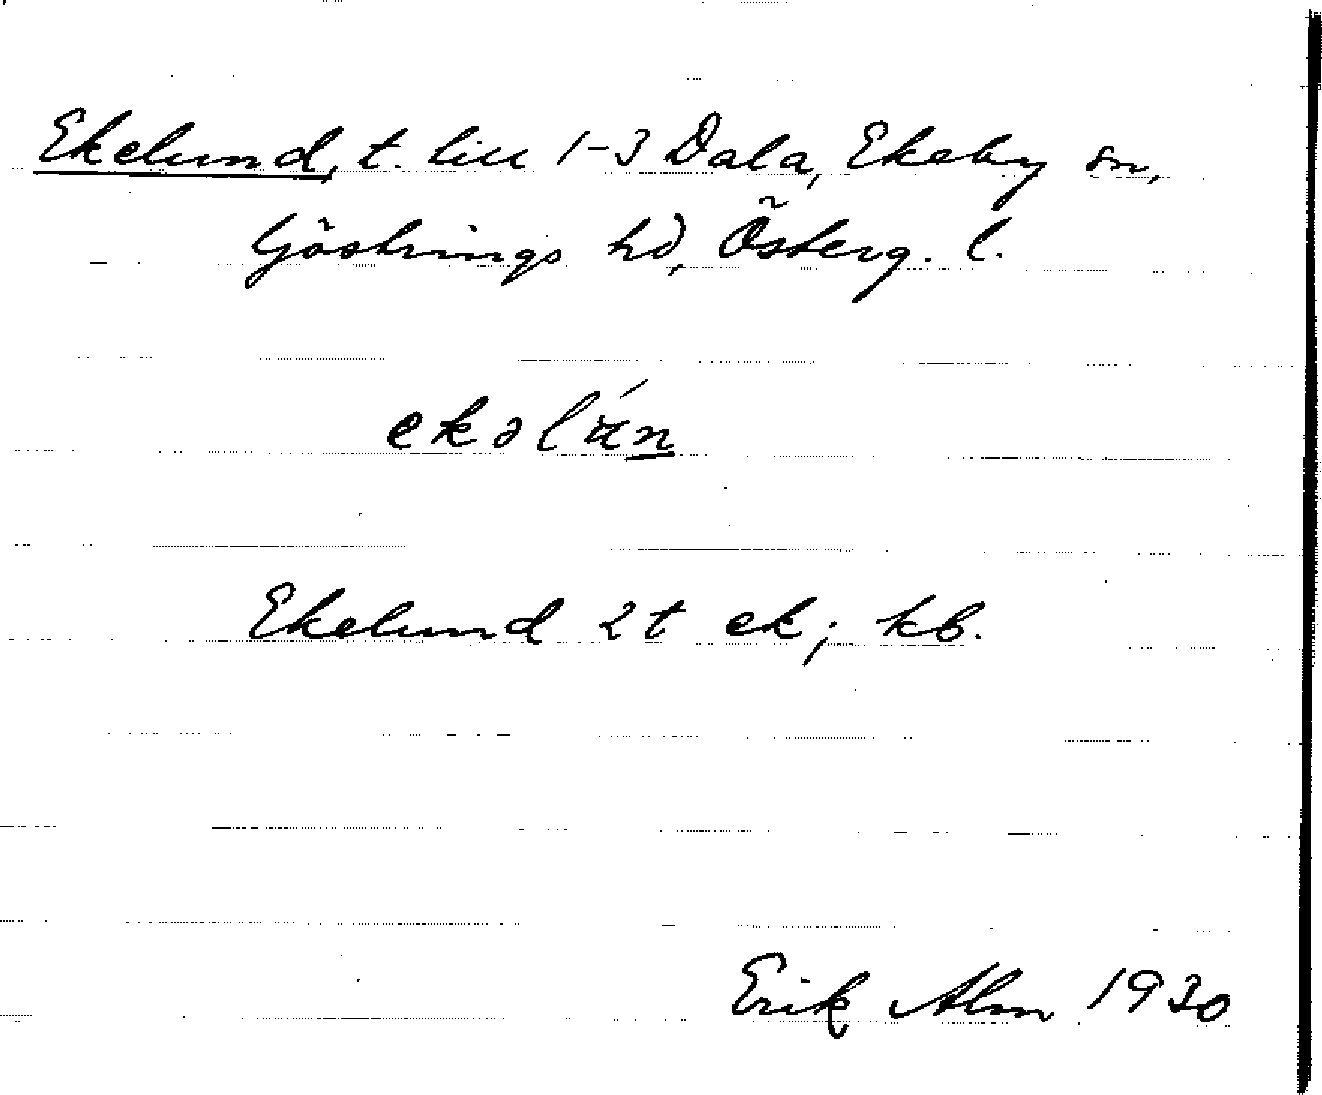 Ekelund, t. till 1-3 Dala, Ekeby sn,
Göstrings hd, Österg. l.
ekəlún
Ekelund 2t ek; kb.
Erik Alm 1930